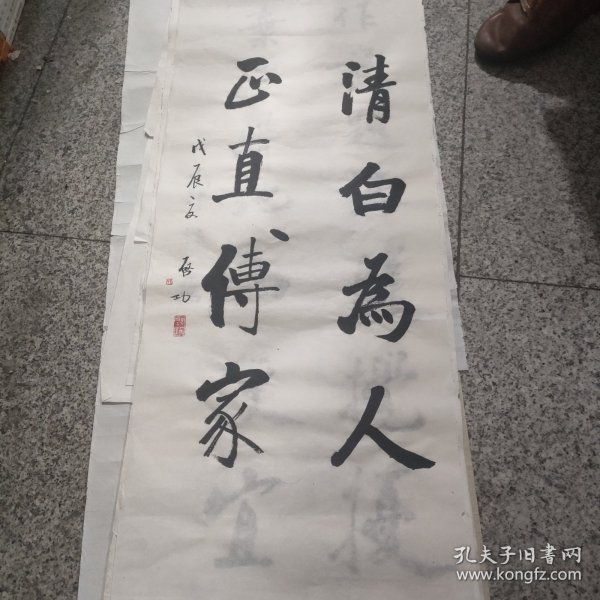 清白為人
正直傳家
戊辰夏
启功
孔夫子旧书网
www.kongfz.com